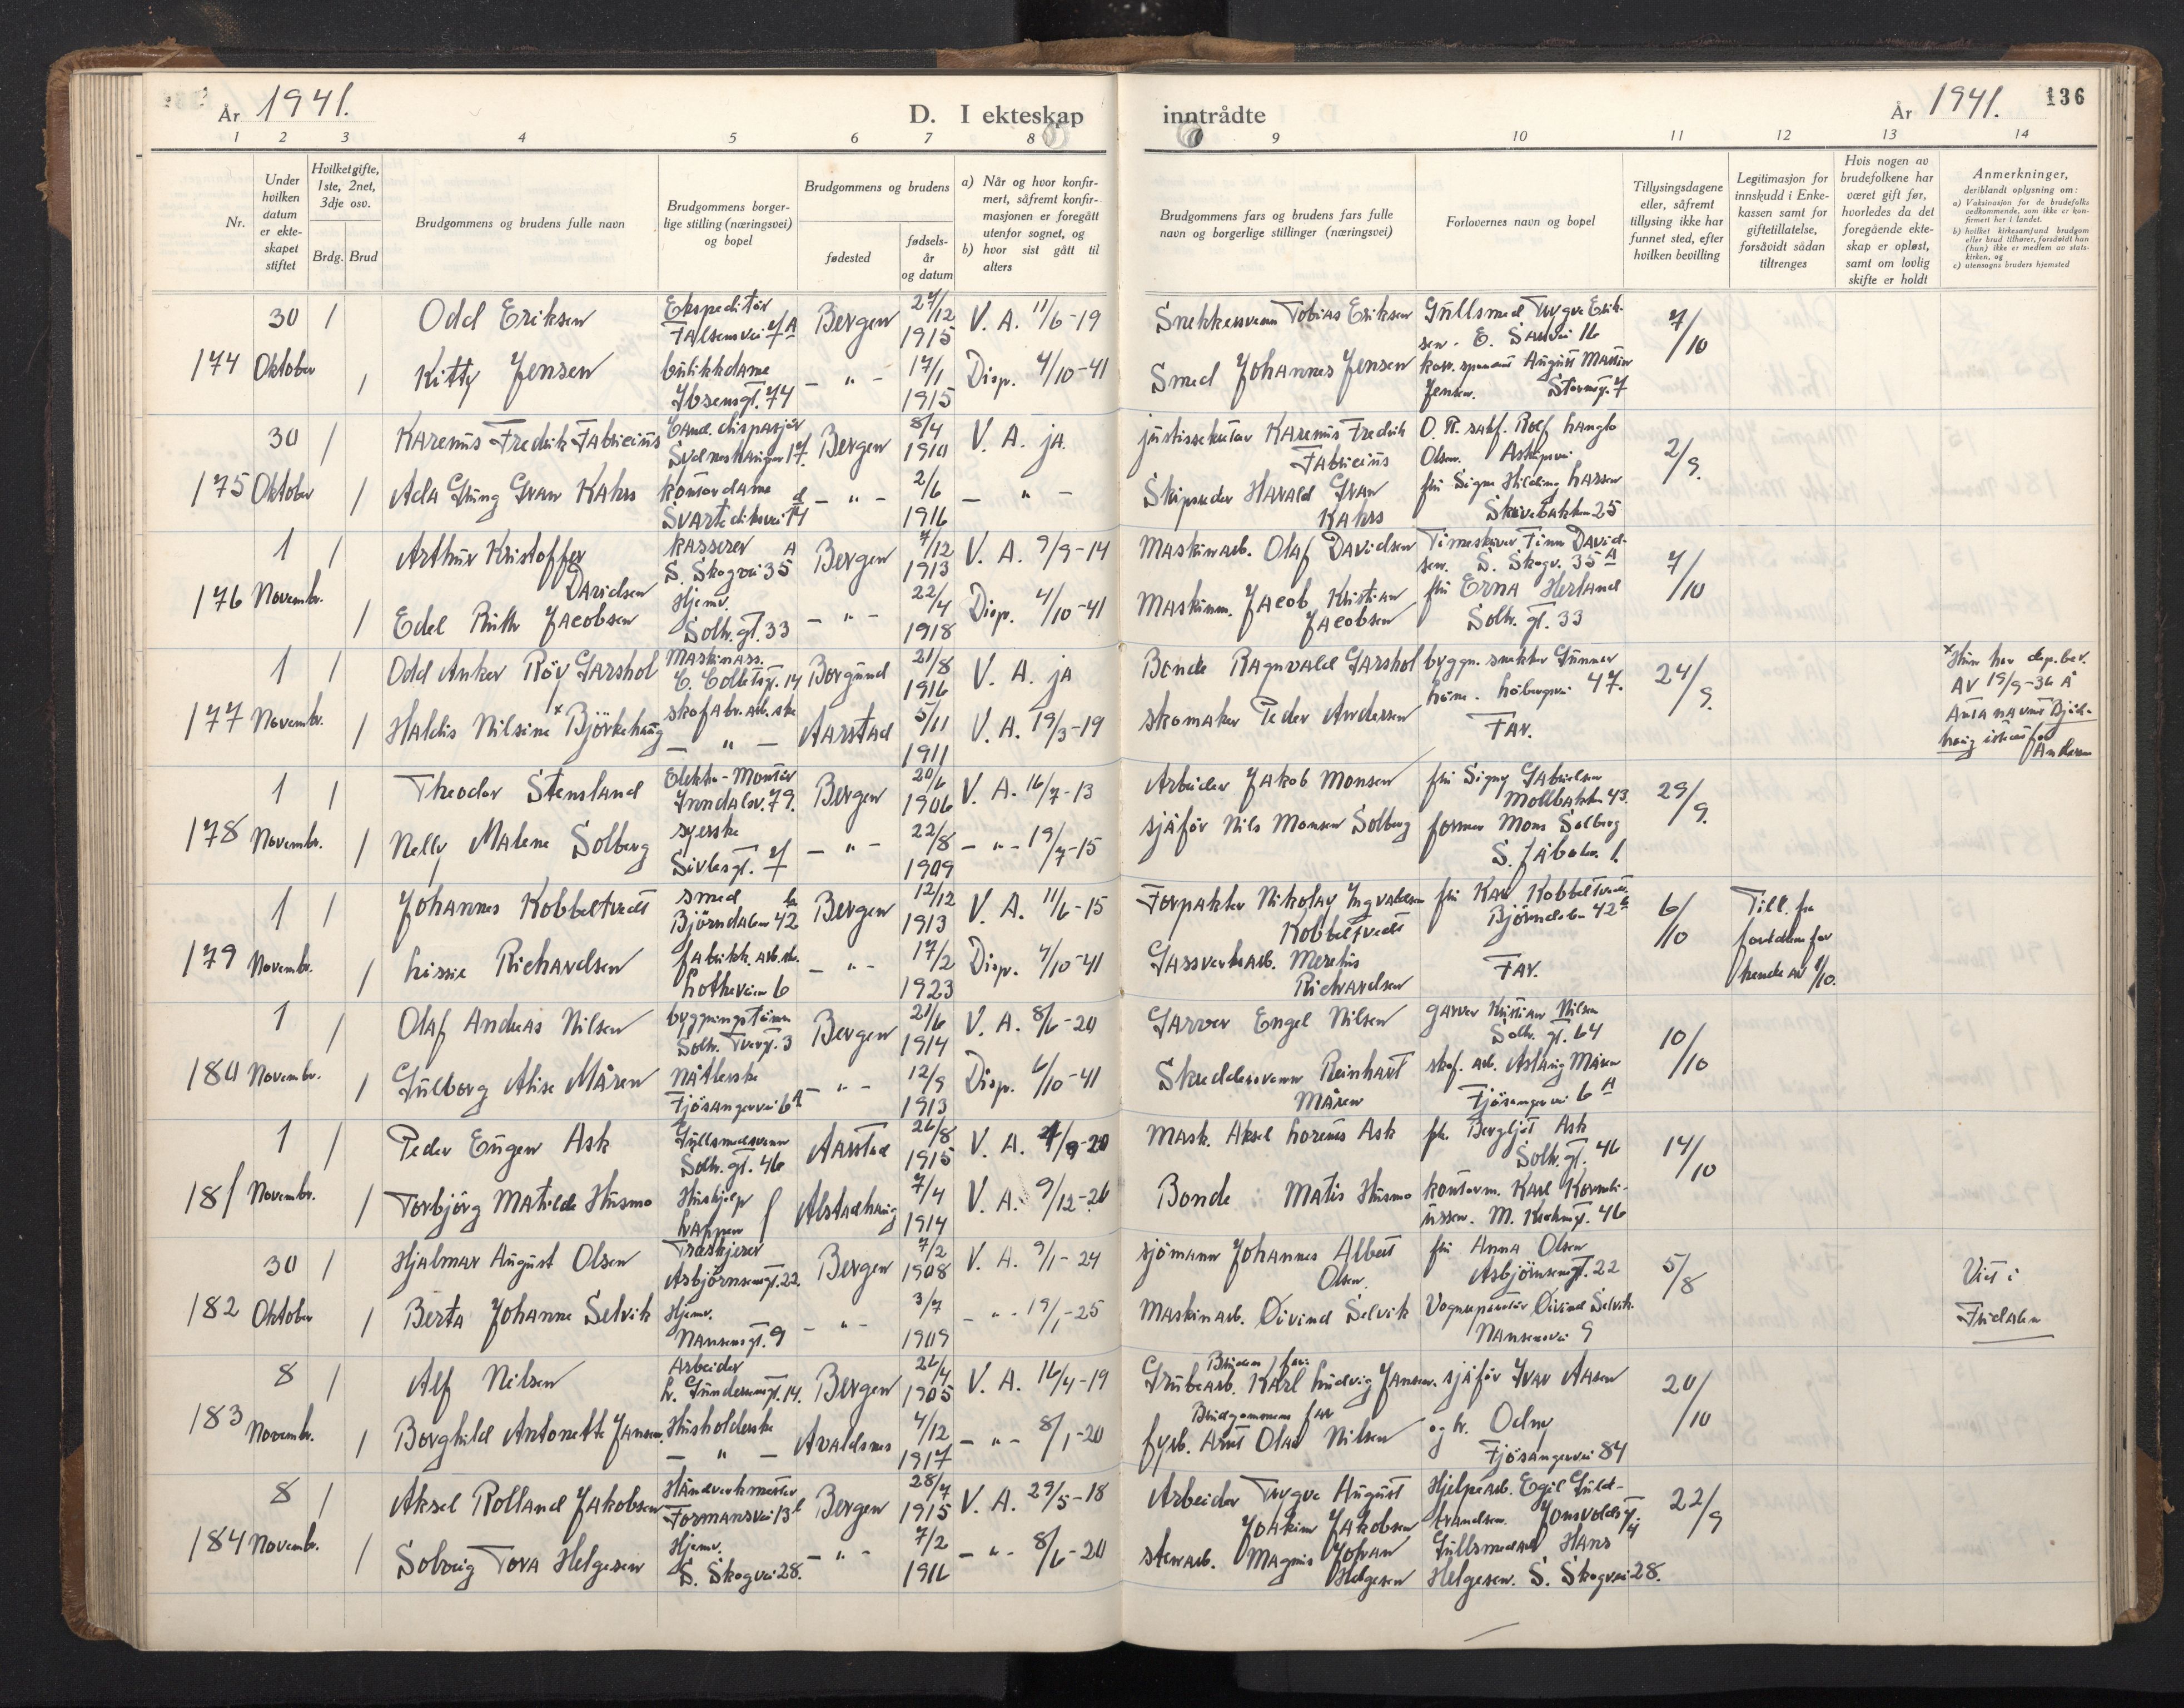 År 1941.
D. I ekteskap inntrådte
År 1941.
136
1 2 3 4 5 6 7 8 9 10 11 12 13 14
Nr.
Under hvilken datum er ekteskapet stiftet
Hvilket gifte, 1ste, 2net, 3dje osv.
Brdg. Brud
Brudgommens og brudens fulle navn
Brudgommens borgerlige stilling (næringsvei) og bopel
Brudgommens og brudens
fødested
fødselsår og datum
a) Når og hvor konfirmert, såfremt konfirmasjonen er foregått utenfor sognet, og
b) hvor sist gått til alters
Brudgommens fars og brudens fars fulle navn og borgerlige stillinger (næringsvei)
Forlovernes navn og bopel
Tillysingsdagene eller, såfremt tillysing ikke har funnet sted, efter hvilken bevilling
Legitimasjon for innskudd i Enkekassen samt for giftetillatelse, forsåvidt sådan tiltrenges
Hvis nogen av brudefolkene har været gift før, hvorledes da det foregående ekteskap er opløst, samt om lovlig skifte er holdt
Anmerkninger,
deriblandt oplysning om:
a) Vaksinasjon for de brudefolks vedkommende, som ikke er konfirmert her i landet.
b) hvilket kirkesamfund brudgom eller brud tilhører, forsåvidt han (hun) ikke er medlem av statskirken, og
c) utensogns bruders hjemsted
174 30 Oktober 1 Odd Eriksen Ekspeditør Falsensvei 7A Bergen 27/12 1915 V. A. 11/6-19 Snekkersvenn Tobias Eriksen Gullsmed Trygve Eriksen. 7/10
1 Kitty Jensen butikkdame Ibsensgt. 74 - " - 17/1 1915 Disp. 4/10-41 Smed Johannes Jensen August Martin Jensen.
175 30 Oktober 1 Karenus Fredrik Fabricius Cand. dispasjør Sydneshaugen 17. Bergen 8/4 1910 V. A. ja. justissekretær Karenus Fredrik Fabricius O. R. sakf. Rolf Langlo Olsen. 2/9.
1 Ada Gran Kahrs kontordame Svartediksvei 14 d - " - 2/6 1916 - " - Skipsreder Harald Gran Kahrs fru Signe Hilding Larsen Skivebakken 25
176 1 Novembr. 1 Arthur Kristoffer Davidsen kasserer S. Skogvei 35 A Bergen 7/12 1913 V. A. 9/9-14 Maskinarb. Olaf Davidsen Timeskriver Finn Davidsen. S. Skogv. 35 A 7/10
1 Edel Ruth Jacobsen Hjemv. Solh. gt. 33 - " - 22/4 1918 Disp. 4/10-41 Maskinm. Jacob Kristian Jacobsen fru Erna Herland Solh. gt. 33
177 1 Novembr. 1 Odd Anker Röv Garshol Maskinass. C. Colletsgt. 14 Borgund 21/8 1916 V. A. ja Bonde Ragnvald Garshol byggn. snekker Gunnar Löne. Löbergsvei 47. 24/9.
1 Haldis Nilsine x Björkehaug skofabr. arb.ske - " - Aarstad 5/11 1911 V. A. 19/3-19 skomaker Peder Andersen Far.
x Hun har dep.bev. av 19/9-36 å anta navnet Björkehaug istedenfor Andersen
178 1 Novembr. 1 Theodor Stensland Elektro-Montör Inndalsv. 79. Bergen 20/6 1906 V. A. 16/7-13 Arbeider Jakob Monsen fru Signy Gabrielsen Möllbakken 43. 29/9.
1 Nelly Malene Solberg syerske Sivlesgt. 7 - " - 22/8 1909 - " - 19/7-15 sjåför Nils Monsen Solberg former Mons Solberg
179 1 Novembr. 1 Johannes Kobbeltvedt smed Björndalen 42 b Bergen 12/12 1913 V. A. 11/6-15 Forpakter Nikolay Ingvaldsen Kobbeltvedt fru Kari Kobbeltvedt Björndalen 42 b 6/10 Till. fra foreldrene for hende av 1/10.
1 Lissie Richardsen fabrikk. arb.ske. Lotheveien 6 - " - 17/2 1923 Disp. 4/10-41 Gassverksarb. Meretius Richardsen Far.
180 1 Novembr. 1 Olaf Andreas Nilsen bygningstömm. Solh. Tverrgt. 3 Bergen 21/6 1914 V. A. 8/6-20 Garver Engel Nilsen garver Kristian Nilsen Solh. gt. 64 10/10
1 Gulborg Alise Måren Nåtlerske Fjösangervei 6 A - " - 12/9 1913 Disp. 6/10-41 Skreddersvenn Reinhart Måren skof. arb. Aslaug Måren Fjösangervei 6 A
181 1 Novembr. 1 Peder Eugen Ask Gullsmedsvenn Solh. gt. 46 Aarstad 26/8 1915 V. A. Mask. Aksel Lorenus Ask frk. Bergljot Ask Solh. gt. 46 14/10
1 Torbjörg Matilde Husmo Hushjelp Alstadhaug 7/4 1914 V. A. 9/12-26 Bonde Matis Husmo kontorm. Karl Korneliussen. M. Krohnsgt. 46
182 30 Oktober 1 Hjalmar August Olsen Træskjærer Asbjörnsensgt. 22. Bergen 7/2 1908 V. A. 9/1-24 sjömann Johannes Albert Olsen. fru Anna Olsen Asbjörnsensgt. 22 5/8 Viet i Fridalen
1 Berta Johanne Selvik Hjemv. Nansensgt. 9 - " - 3/7 1909 - " - 19/1-25 Maskinarb. Öivind Selvik Vognreparatör Öivind Selvik. Nansensvei 9
183 8 Novembr. 1 Alf Nilsen Arbeider L. Gundersensgt. 14. Bergen 26/4 1905 V. A. 16/4-19 Brudens far: Grubearb. Karl Ludvig Jansen. sjåför Ivar Aasen 20/10
1 Borghild Antonette Jansen. Husholderske - " - Avaldsnes 4/12 1917 - " - 8/1-20 Brudgommens far fyrb. Arnt Olai Nilsen og fr. Odny Fjösangervei 84
184 8 Novembr. 1 Aksel Rolland Jakobsen Håndverkmester Formansvei 13 b Bergen 28/7 1915 V. A. 29/5-18 Arbeider Trygve August Joakim Jakobsen Hjelpearb. Egil Guldbrandsen. 22/9
1 Solveig Tora Helgesen Hjemv. S. Skogvei 28. - " - 7/2 1916 - " - 8/6-20 stenarb. Magnus Johan Helgesen Gullsmedarb. Hans Helgesen. S. Skogvei 28.